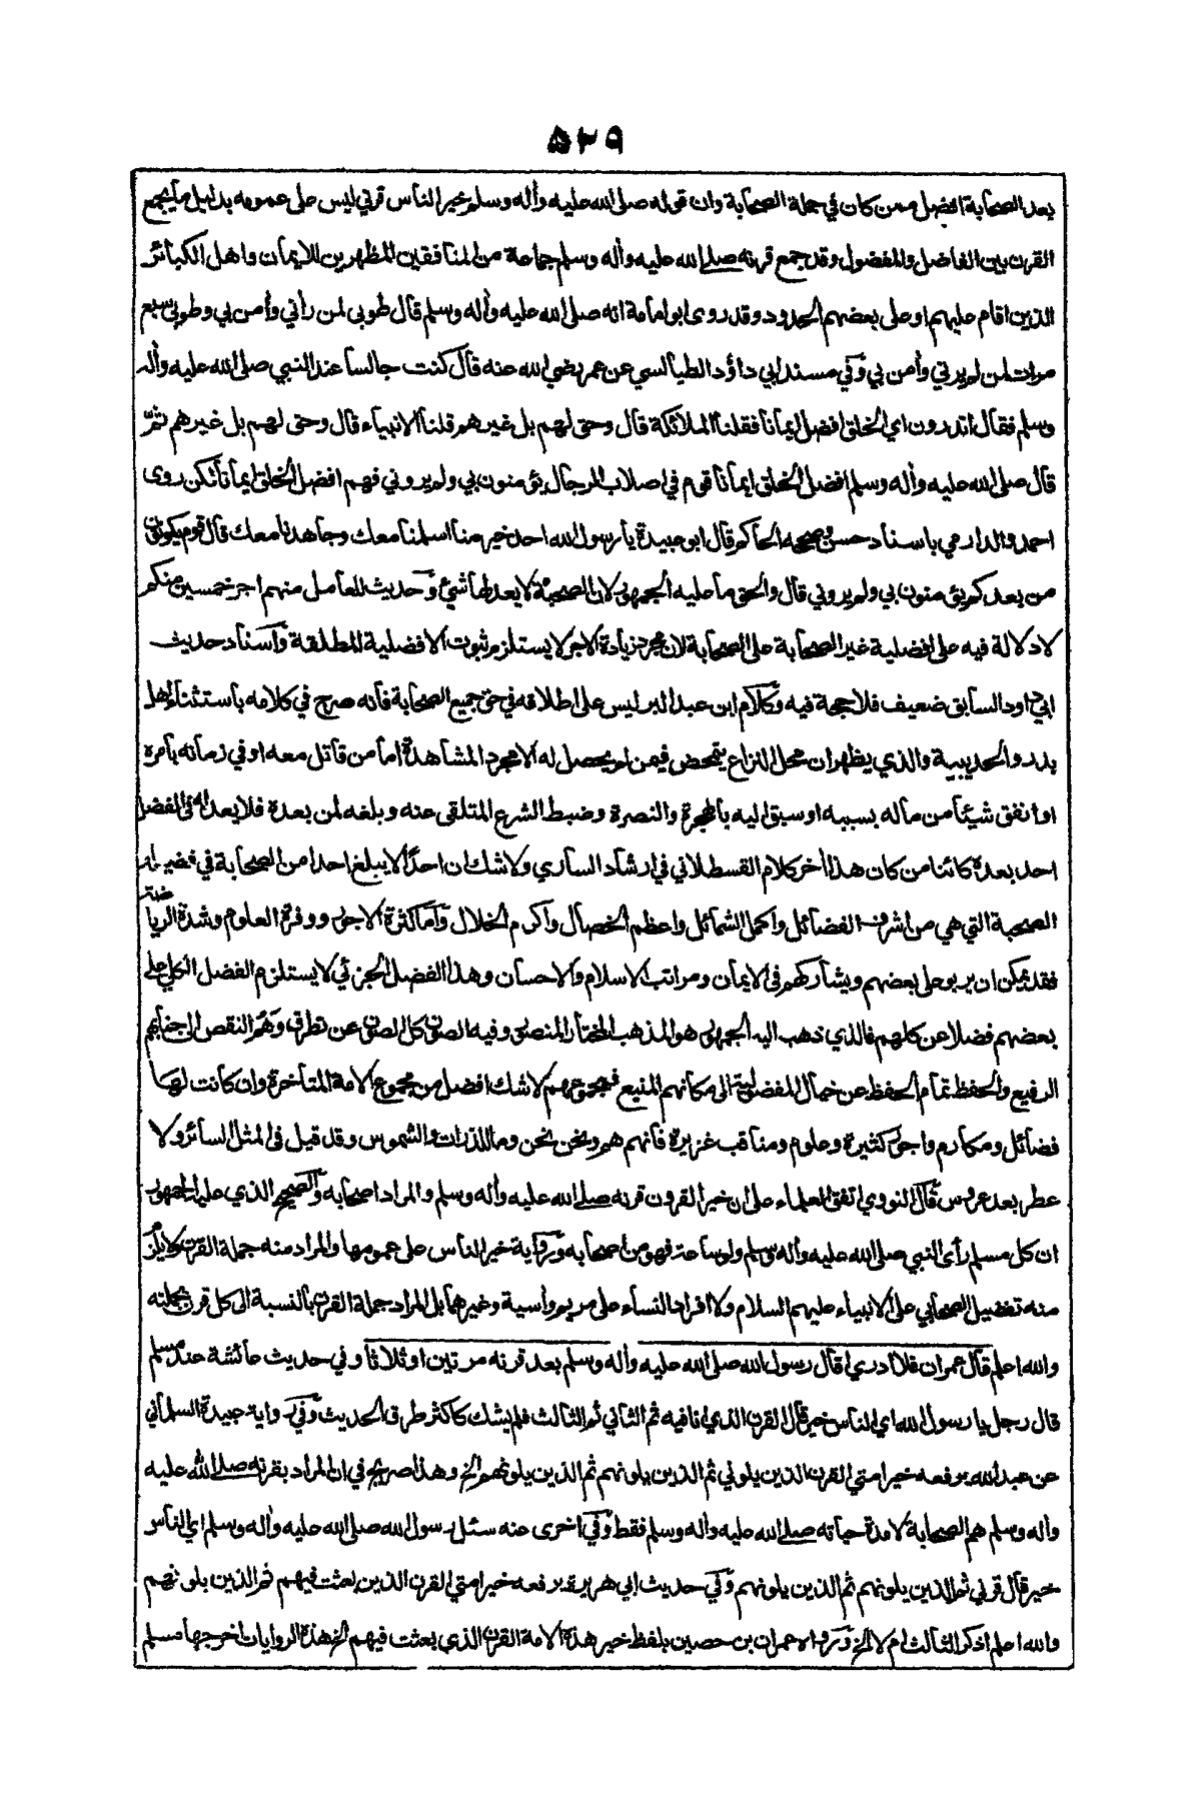 ٥٣٩
بعد الصحابة افضل ممن كان في جملة الصحابة وان قوله صلى الله عليه وأله وسلم خير الناس قرني ليس على عمومه بدليل ما يجمع
القرن بين الفاضل والمفضول وقد جمع قرنه صلى الله عليه وأله وسلم جماعة من المنافقين المظهرين للايمان واهل الكبائر
الذين اقام عليهم او على بعضهم الحدود وقد روى ابو امامة انه صلى الله عليه وأله وسلم قال طوبى لمن رأني وأمن بي وطوبى سبع
مرات لمن لم يرني وأمن بي وفي مسند ابي داؤد الطيالسي عن عمر رضي الله عنه قال كنت جالسا عند النبي صلى الله عليه وأله
وسلم فقال اتدرون اي الخلق افضل ايمانا فقلنا الملائكة قال وحق لهم بل غيرهم قلنا الانبياء قال وحق لهم بل غيرهم ثم
قال صلى الله عليه وأله وسلم افضل الخلق ايمانا قوم في اصلاب الرجال يؤمنون بي ولم يروني فهم افضل الخلق ايمانا لكن روى
احمد والدارمي باسناد حسن وصححه الحاكم قال ابو عبيدة يا رسول الله احد خير منا اسلمنا معك وجاهدنا معك قال قوم يكونون
من بعدكم يؤمنون بي ولم يروني قال والحق ما عليه الجمهور لان الصحبة لا يعدلها شيء وحديث للعامل منهم اجر خمسين منكم
لا دلالة فيه على افضلية غير الصحابة على الصحابة لان مجرد زيادة الاجر لا يستلزم ثبوت الافضلية المطلقة واسناد حديث
ابي داود السابق ضعيف فلا حجة فيه وكلام ابن عبد البر ليس على اطلاقه في حق جميع الصحابة فانه صرح في كلامه باستثناء اهل
بدر والحديبية والذي يظهر ان محل النزاع يتمحض فيمن لم يحصل له الا مجرد المشاهدة اما من قاتل معه او في زمانه بامره
او انفق شيئا من ماله بسببه او سبق اليه بالهجرة والنصرة وضبط الشرع المتلقى عنه وبلغه لمن بعده فلا يعدله في الفضل
احد بعده كائنا من كان هذا أخر كلام القسطلاني في ارشاد الساري ولا شك ان احدا لا يبلغ احدا من الصحابة في فضيلة
الصحبة التي هي من اشرف الفضائل واكمل الشمائل واعظم الخصال واكرم الخلال واما كثرة الاجور ووفرة العلوم وشدة الرياضة
فقد يمكن ان يربو على بعضهم ويشاركهم في الايمان ومراتب الاسلام والاحسان وهذا الفضل الجزئي لا يستلزم الفضل الكلي على
بعضهم فضلا عن كلهم فالذي ذهب اليه الجمهور هو المذهب المختار المنصور وفيه الصون كل الصون عن تطرق وهم النقص الى جنابهم
الرفيع والحفظ تمام الحفظ عن خيال المفضولية الى مكانهم المنيع فمجموعهم لا شك افضل من مجموع الامة المتأخرة وان كانت لها
فضائل ومكارم واجور كثيرة وعلوم ومناقب غزيرة فانهم هم ونحن نحن وما للذرات والشموس وقد قيل في المثل السائر ولا
عطر بعد عروس قال النووي اتفق العلماء على ان خير القرون قرنه صلى الله عليه وأله وسلم والمراد اصحابه والصحيح الذي عليه الجمهور
ان كل مسلم رأى النبي صلى الله عليه وأله وسلم ولو ساعة فهو من اصحابه ورواية خير الناس على عمومها والمراد منه جملة القرن ولا يلزم
منه تفضيل الصحابي على الانبياء عليهم السلام ولا افراد النساء على مريم وأسية وغيرهما بل المراد جملة القرن بالنسبة الى كل قرن بجملته
والله اعلم قال عمران فلا ادري اقال رسول الله صلى الله عليه وأله وسلم بعد قرنه مرتين او ثلاثا وفي حديث عائشة عند مسلم
قال رجل يا رسول الله اي الناس خير قال القرن الذي انا فيه ثم الثاني ثم الثالث فلم يشك كاكثر طرق الحديث وفي رواية عبيدة السلماني
عن عبد الله يرفعه خير امتي القرن الذين يلوني ثم الذين يلونهم ثم الذين يلونهم الخ وهذا صريح في ان المراد بقرنه صلى الله عليه
وأله وسلم هم الصحابة لا مدة حياته صلى الله عليه وأله وسلم فقط وفي اخرى عنه سئل رسول الله صلى الله عليه وأله وسلم اي الناس
خير قال قرني ثم الذين يلونهم ثم الذين يلونهم وفي حديث ابي هريرة يرفعه خير امتي القرن الذين بعثت فيهم ثم الذين يلونهم
والله اعلم اذكر الثالث ام لا الخ ورواه عمران بن حصين بلفظ خير هذه الامة القرن الذي بعثت فيهم الخ هذه الروايات اخرجها مسلم